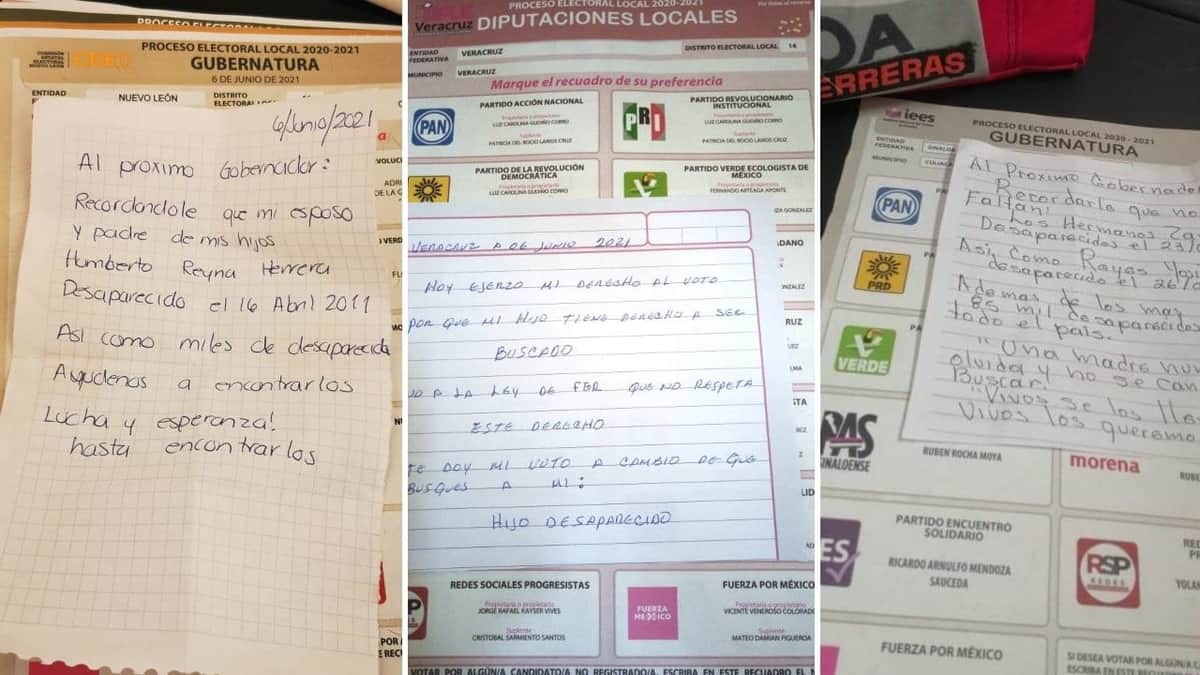 PROCESO ELECTORAL LOCAL 2020-2021
GUBERNATURA
6 DE JUNIO DE 2021
ENTIDAD
NUEVO LEÓN
DISTRITO
ELECTORAL
6/Junio/2021
Al proximo Gobernador:
Recordandole que mi esposo
y padre de mis hijos
Humberto Reyna Herrera
Desaparecido el 16 Abril 2011
Asi como miles de desaparecida
Ayudenos a encontrarlos
Lucha y esperanza!
hasta encontrarlos
Veracruz
PROCESO ELECTORAL LOCAL 2020-2021
DIPUTACIONES LOCALES
ENTIDAD FEDERATIVA
VERACRUZ
DISTRITO ELECTORAL LOCAL 14
MUNICIPIO
VERACRUZ
Marque el recuadro de su preferencia
PAN
PARTIDO ACCIÓN NACIONAL
Propietaria o propietario
LUZ CAROLINA GUDIÑO CORRO
Suplente
PATRICIA DEL ROCIO LARIOS CRUZ
PRI
PARTIDO REVOLUCIONARIO
INSTITUCIONAL
Propietaria o propietario
LUZ CAROLINA GUDIÑO CORRO
Suplente
PATRICIA DEL ROCIO LARIOS CRUZ
PARTIDO DE LA REVOLUCIÓN
DEMOCRÁTICA
Propietaria o propietario
LUZ CAROLINA GUDIÑO CORRO
VERDE
PARTIDO VERDE ECOLOGISTA DE
MÉXICO
Propietaria o propietario
FERNANDO ARTEAGA APONTE
VERACRUZ A 06 JUNIO 2021
HOY EJERZO MI DERECHO AL VOTO
POR QUE MI HIJO TIENE DERECHO A SER
BUSCADO
NO A LA LEY DE FGR QUE NO RESPETA
ESTE DERECHO
TE DOY MI VOTO A CAMBIO DE QUE
BUSQUES A MI:
HIJO DESAPARECIDO
REDES SOCIALES PROGRESISTAS
Propietaria o propietario
JORGE RAFAEL KAYSER VIVES
Suplente
CRISTOBAL SARMIENTO SANTOS
FUERZA MEXICO
FUERZA POR MÉXICO
Propietaria o propietario
VICENTE VENEROSO COLORADO
Suplente
MATEO DAMIAN FIGUEROA
VOTAR POR ALGÚN/A CANDIDATO/A NO REGISTRADO/A, ESCRIBA EN ESTE RECUADRO EL
OA
ERRERAS
iees
PROCESO ELECTORAL LOCAL 2020 - 2021
GUBERNATURA
ENTIDAD FEDERATIVA
SINALOA
MUNICIPIO
PAN
PRD
VERDE
PAS
SINALOENSE
Al Proximo Gobernador
Recordarle que nos
Faltan!
Los Hermanos
Desaparecidos el 23/
Asi, Como Reyes
desaparecido el 26/
Ademas, de los mas
85 mil desaparecidos
todo el país.
"Una madre nun
olvida y no se can
Buscar!
"Vivos se los lle
Vivos los queremos
RUBEN ROCHA MOYA
morena
PARTIDO ENCUENTRO
SOLIDARIO
RICARDO ARNULFO MENDOZA
SAUCEDA
RSP
REDES
FUERZA POR MÉXICO
SI DESEA VOTAR POR ALGÚN/A
ESCRIBA EN ESTE RECUADRO EL